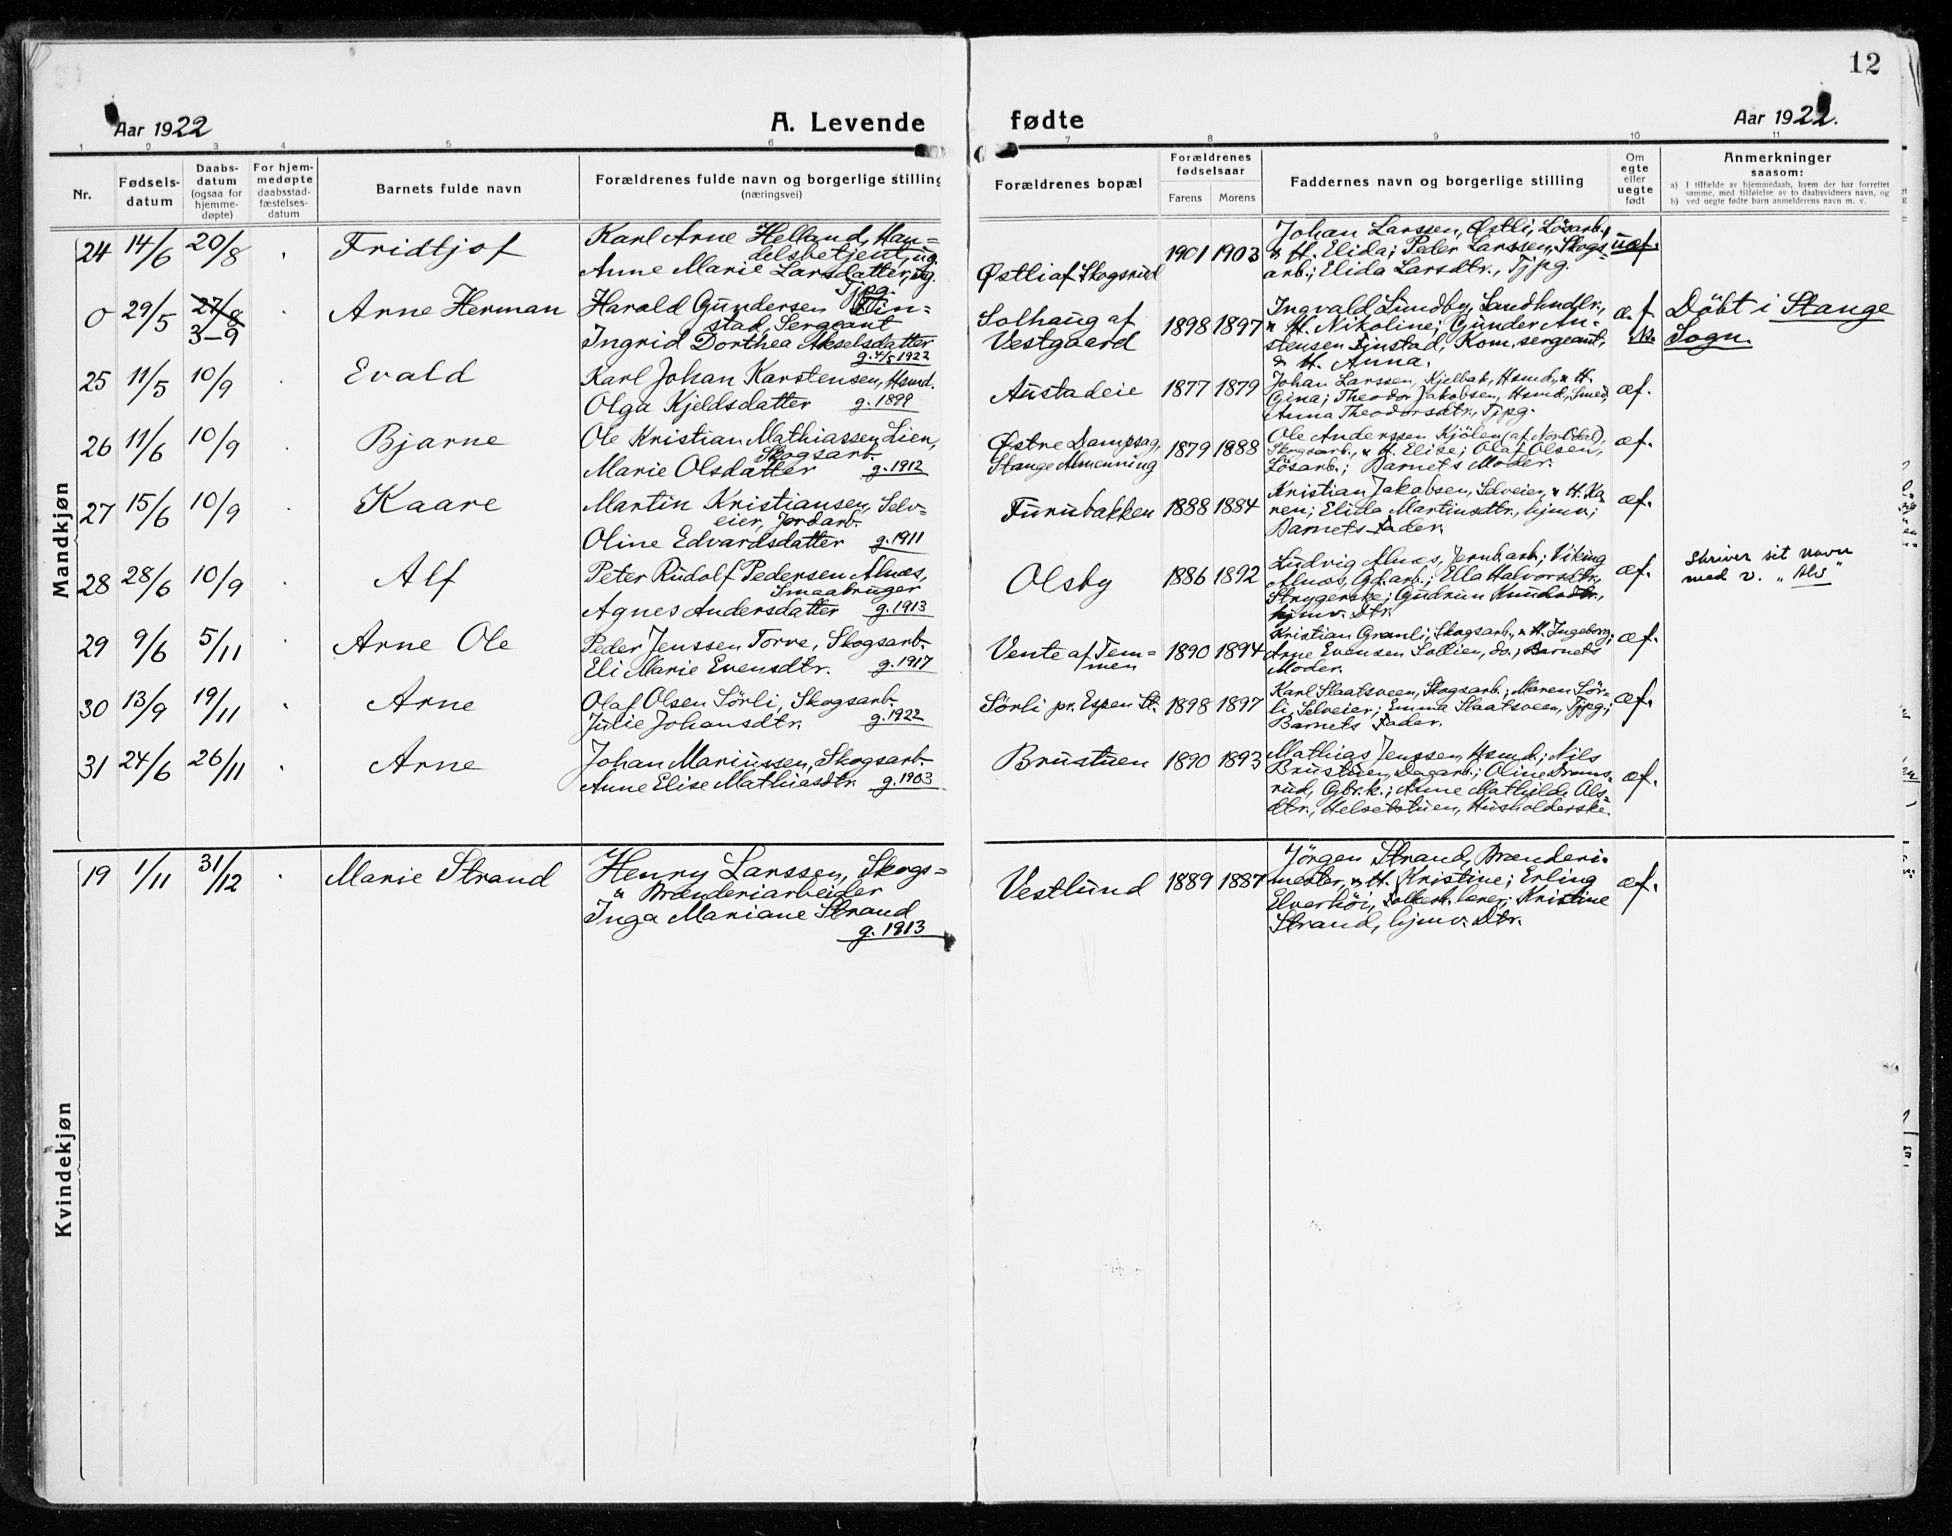 12
Aar 1922
A. Levende
fødte
Aar 1922.
1 2 3 4 5 6 7 8 9 10 11
Nr.
Fødsels-
datum
Daabs-
datum
(ogsaa for
hjemme-
døpte)
For hjem-
medøpte
daabsstad-
fæstelses-
datum
Barnets fulde navn
Forældrenes fulde navn og borgerlige stilling
(næringsvei)
Forældrenes bopæl
Forældrenes
fødselsaar
Farens Morens
Faddernes navn og borgerlige stilling
Om
egte
eller
uegte
født
Anmerkninger
saasom:
a) I tilfælde av hjemmedaab, hvem der har forrettet
samme, med tilføielse av to daabsvidners navn, og
b) ved uegte fødte barn anmelderens navn m. v.
Mandkjøn
24 14/6 20/8 Fridtjof
Karl Arne Helland, Han-
delsbetjent, ug.
Anne Marie Larsdatter, ug.
Tjpg.
Østli af Skogsrud
1901 1903
Johan Larssen, Østli, Lösarb.
& H. Elida; Peder Larssen, Skogs-
arb.; Elida Larsdtr., Tjpg.
uæf.
0 29/5 27/8
3-9
Arne Herman
Harald Gundersen Fin-
stad, Sergeant
Ingrid Dorthea Akselsdatter
g. 4/5 1922
Solhaug af
Vestgaard
1898 1897
Ingvald Lundby, Landhndlr.,
& H. Nikoline; Gunder An-
stensen Finstad, Kom. sergeant,
& H. Anna.
æ. f.
Döbt i Stange
Sogn.
25 11/5 10/9 Evald
Karl Johan Karstensen, Hsmd.
Olga Kjeldsdatter g. 1899
Austadeie
1877 1879
Johan Larssen, Kjelbak, Hsmd., & H.
Gina; Theodor Jakobsen, Hsmd, Smed,
Anna Theodorsdtr., Tjpg.
æf.
26 11/6 10/9 Bjarne
Ole Kristian Mathiassen Lien,
Skogsarb.
Marie Olsdatter g. 1912
Østre Dampsag,
Stange Almenning
1879 1888
Ole Anderssen Kjölen (af Nord Odal),
Skogsarb., & H. Elise; Olaf Olsen,
Lösarb.; Barnets Moder.
æf.
27 15/6 10/9 Kaare
Martin Kristiansen, Selv-
eier, Jordarb.
Oline Edvardsdatter g. 1911
Furubakken
1888 1884
Kristian Jakobsen, Selveier, & H. Ka-
ren; Elida Martinsdtr., hjmv.;
Barnets Fader.
æf.
28 28/6 10/9 Alf
Peter Rudolf Pedersen Alnæs,
Smaabruger
Agnes Andersdatter g. 1913
Olsby
1886 1892
Ludvig Alnæs, Jernb.arb.; Viking
Alnæs, Gdarb.; Ella Halvorsdtr.,
Strygerske; Gudrun Knudsdtr.,
hjmv. Dtr.
æf.
Skriver sit navn
med v. „Alv"
29 9/6 5/11 Arne Ole
Peder Jenssen Torve, Skogsarb.
Eli Marie Evensdtr. g. 1917
Vente af Tem-
men
1890 1894
Kristian Granli, Skogsarb., & H. Ingeborg;
Arne Evensen Sollien, do.; Barnets
Moder.
æf.
30 13/9 19/11 Arne
Olaf Olsen Sörli, Skogsarb.
Julie Johansdtr. g. 1922
Sörli pr. Espen St.
1898 1897
Karl Slaatsveen, Skogsarb.; Maren Sör-
li, Selveier; Emma Slaatsveen, Tjpg.;
Barnets Fader.
æf.
31 24/6 26/11 Arne
Johan Mariussen, Skogsarb.
Anne Elise Mathiasdtr. g. 1903
Brustuen
1890 1893
Mathias Jenssen, Hsmd.; Nils
Brustuen, Dagarb.; Oline
rud, Gbr.k.; Anne Mathilde Ols-
dtr., Helsetstuen, Husholderske.
æf.
Kvindekjøn
19 1/11 31/12 Marie Strand
Henry Larssen, Skogs-
& Brænderiarbeider
Inga Mariane Strand
g. 1913
Vestlund
1889 1887
Jörgen Strand, Brænderi-
mester, & H. Kristine; Erling
Elverhöi, Folkesk. lærer; Kristine
Strand, hjmv. Dtr.
æf.